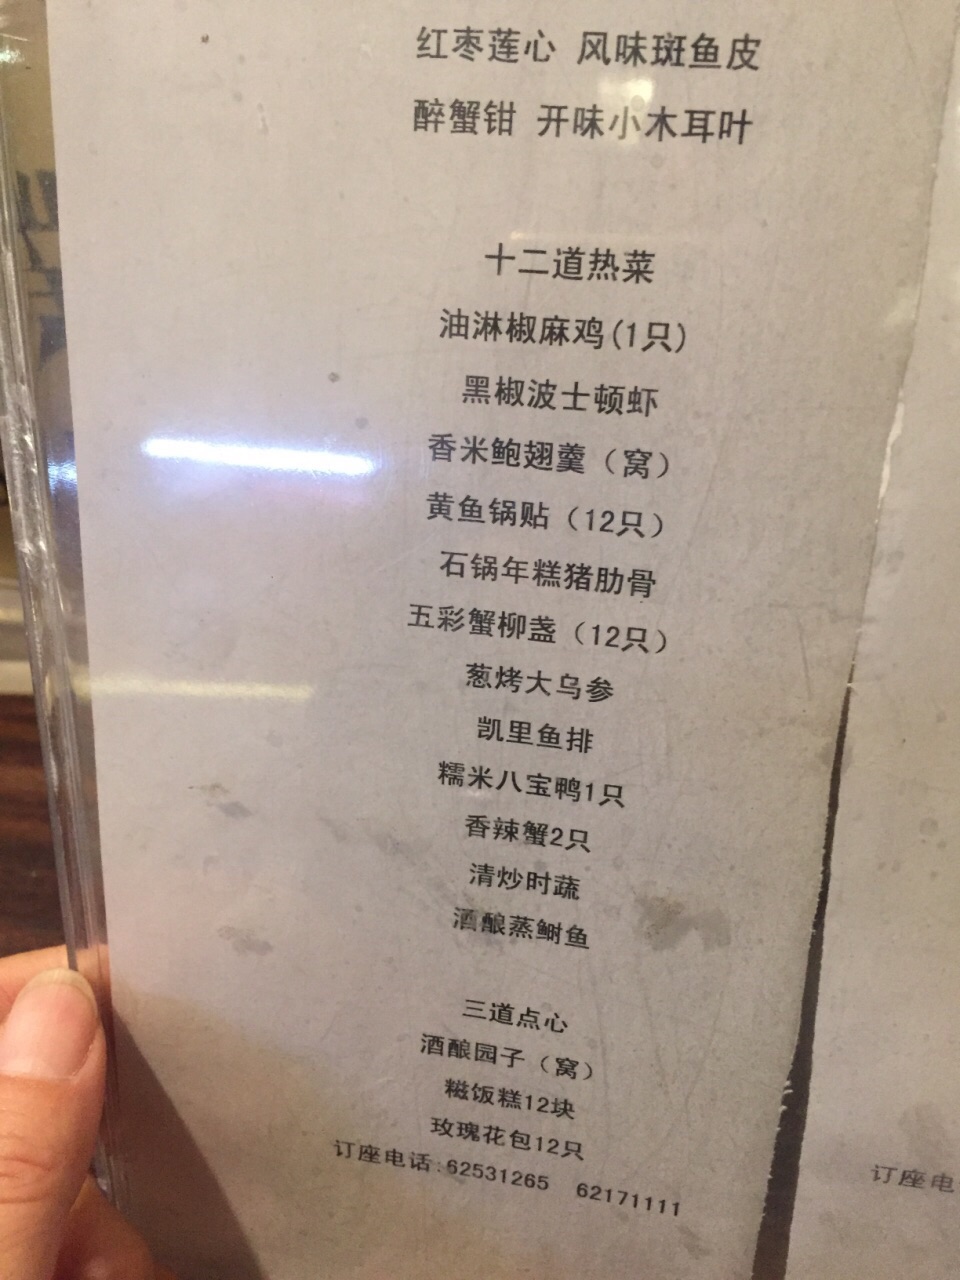 红枣莲心 风味斑鱼皮
醉蟹钳 开味小木耳叶
十二道热菜
油淋椒麻鸡(1只)
黑椒波士顿虾
香米鲍翅羹（窝）
黄鱼锅贴（12只）
石锅年糕猪肋骨
五彩蟹柳盏（12只）
葱烤大乌参
凯里鱼排
糯米八宝鸭1只
香辣蟹2只
清炒时蔬
酒酿蒸鲥鱼
三道点心
酒酿园子（窝）
糍饭糕12块
玫瑰花包12只
订座电话:62531265 62171111
订座电